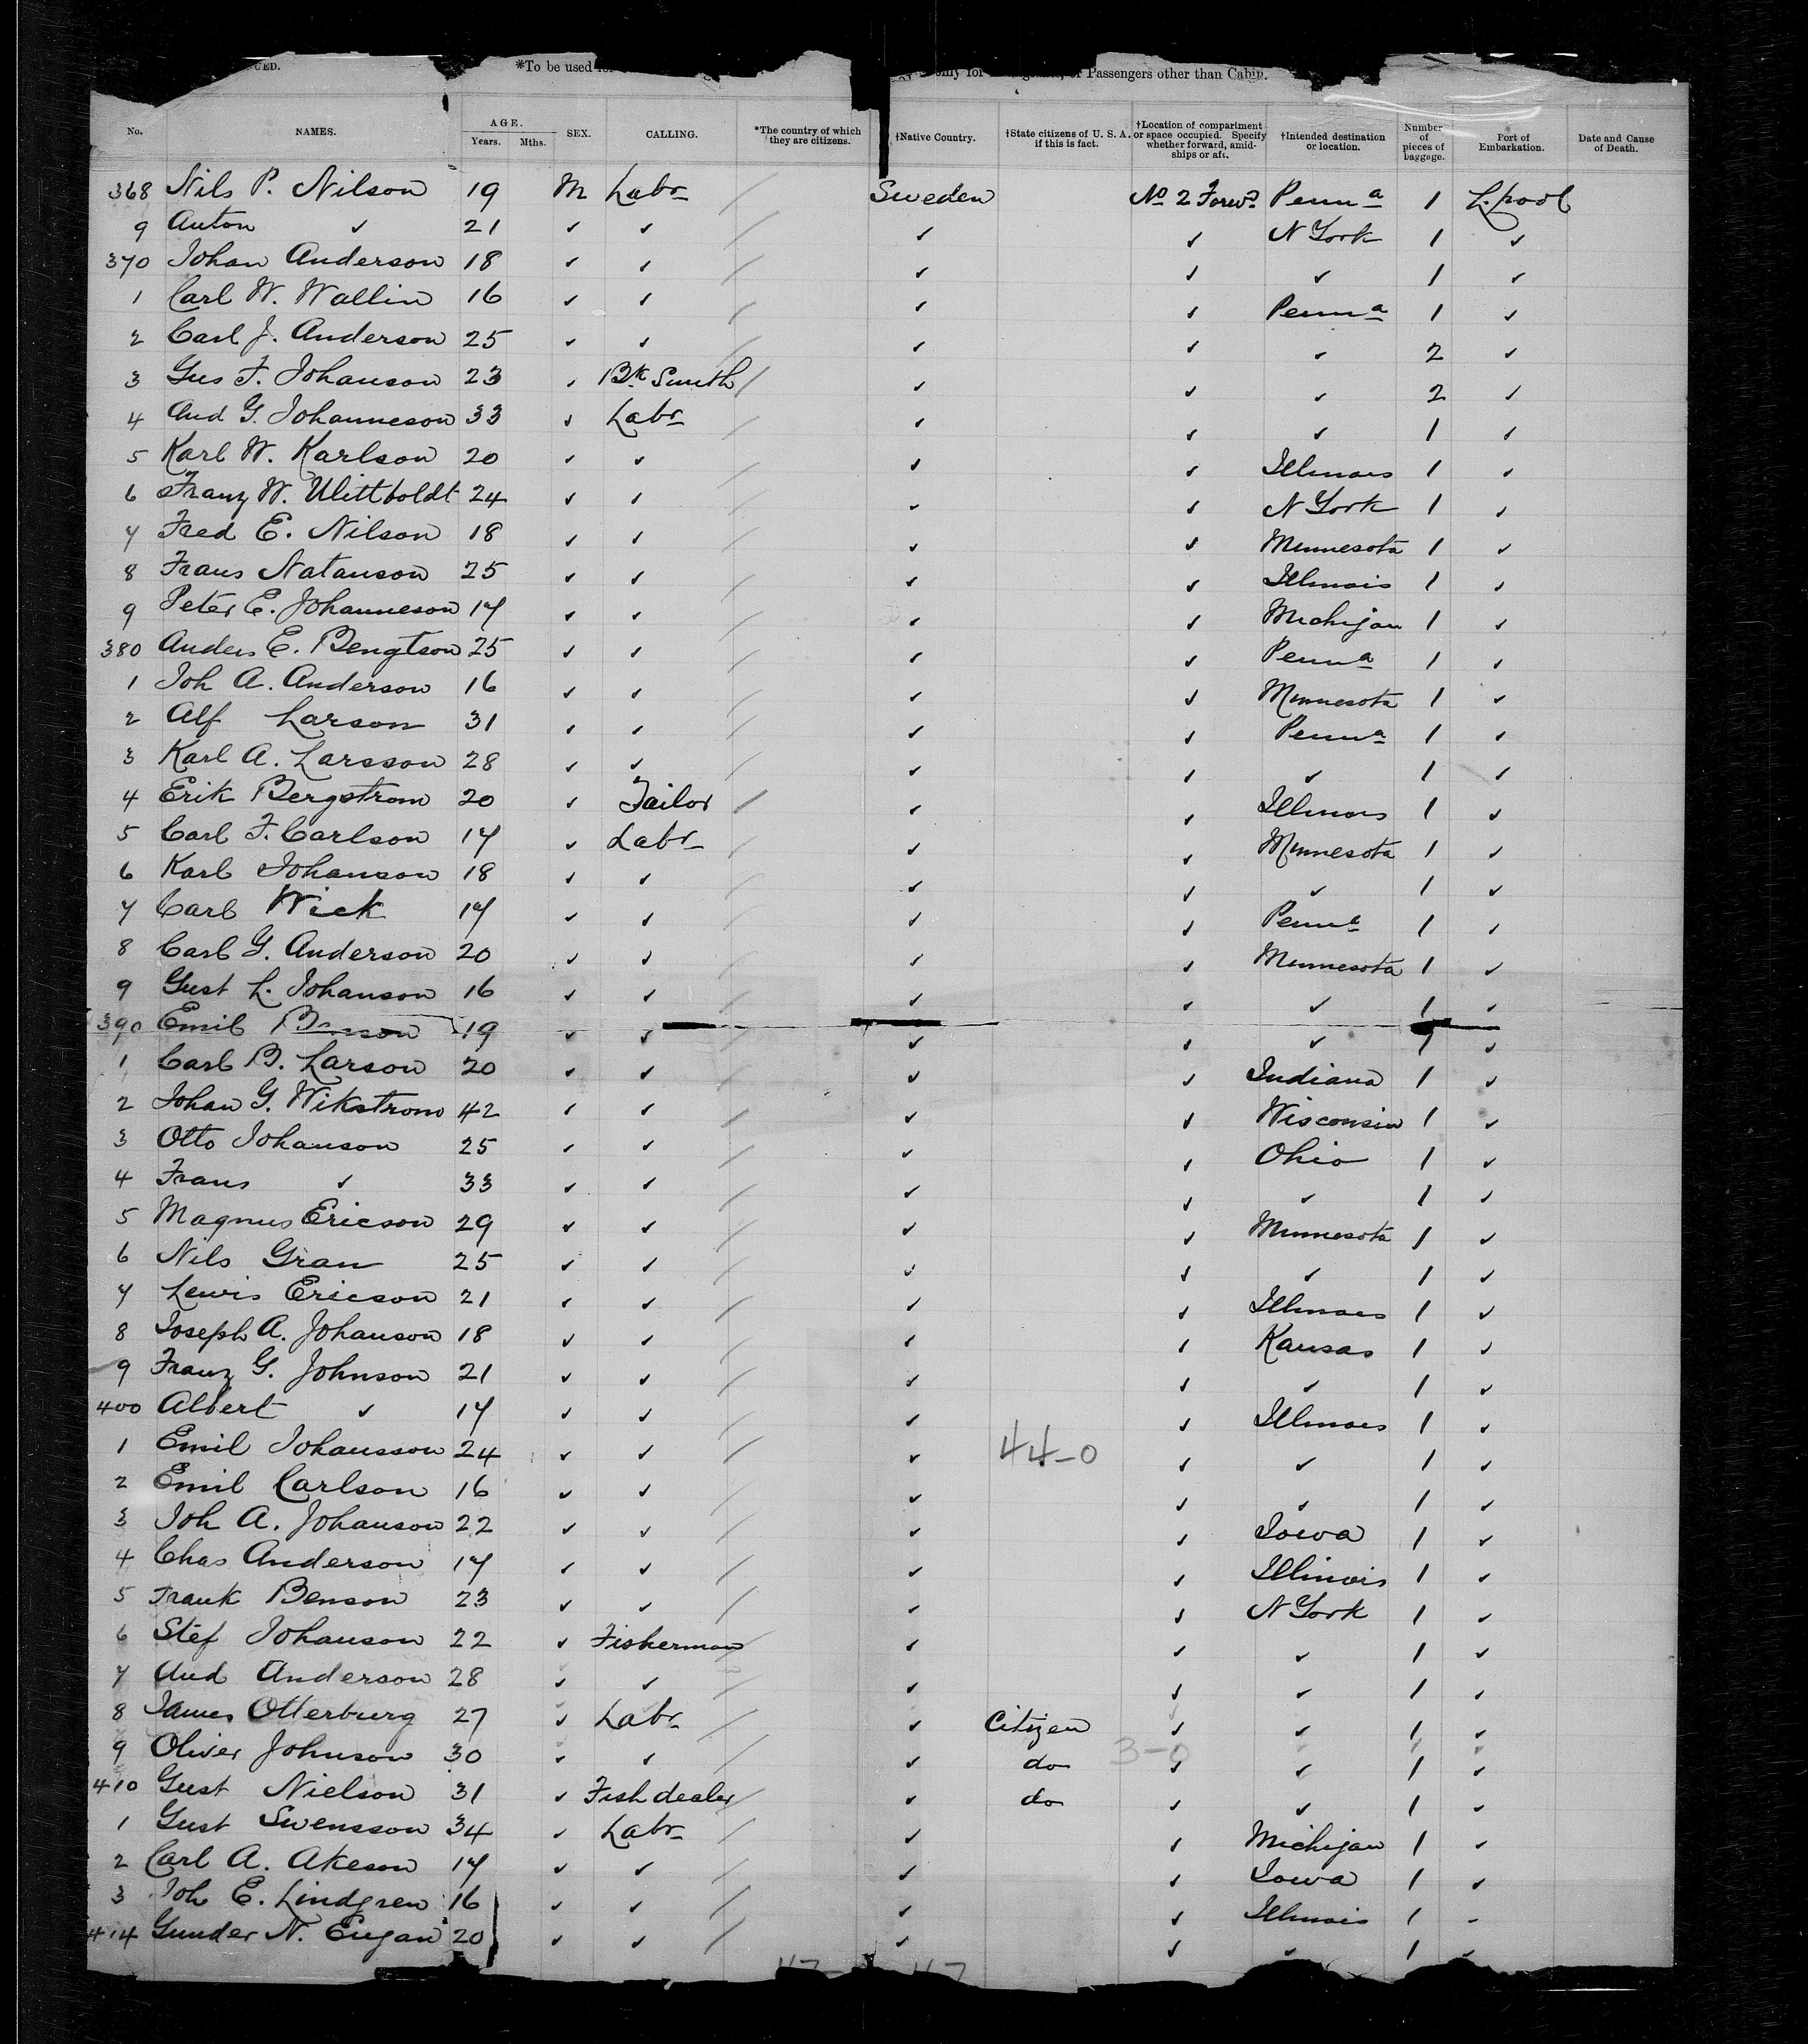 CED. *To be used for only for Passengers other than Cabin.
No. NAMES. AGE. Years. Mths. SEX. CALLING. *The country of which they are citizens. †Native Country. †State citizens of U. S. A. if this is fact. †Location of compartment or space occupied. Specify whether forward, amidships or aft. †Intended destination or location. Number of pieces of baggage. Port of Embarkation. Date and Cause of Death.
368 Nils P. Nilson 19 M Labr / Sweden No 2 Forwd Penna 1 L.pool
9 Anton ✓ 21 ✓ ✓ / ✓ ✓ N York 1 ✓
370 Johan Anderson 18 ✓ ✓ / ✓ ✓ ✓ 1 ✓
1 Carl W. Wallin 16 ✓ ✓ / ✓ ✓ Penna 1 ✓
2 Carl J. Anderson 25 ✓ ✓ / ✓ ✓ ✓ 2 ✓
3 Gus F. Johanson 23 ✓ Bk Smith / ✓ ✓ ✓ 2 ✓
4 And G. Johanneson 33 ✓ Labr / ✓ ✓ ✓ 1 ✓
5 Karl W. Karlson 20 ✓ ✓ / ✓ ✓ Illinois 1 ✓
6 Franz W. Ulittboldt 24 ✓ ✓ / ✓ ✓ N York 1 ✓
7 Fred E. Nilson 18 ✓ ✓ / ✓ ✓ Minnesota 1 ✓
8 Frans Natanson 25 ✓ ✓ / ✓ ✓ Illinois 1 ✓
9 Peter E. Johanneson 17 ✓ ✓ / ✓ ✓ Michigan 1 ✓
380 Anders E. Bengtson 25 ✓ ✓ / ✓ ✓ Penna 1 ✓
1 Joh A. Anderson 16 ✓ ✓ / ✓ ✓ Minnesota 1 ✓
2 Alf Larson 31 ✓ ✓ / ✓ ✓ Penna 1 ✓
3 Karl A. Larsson 28 ✓ ✓ / ✓ ✓ ✓ 1 ✓
4 Erik Bergstrom 20 ✓ Tailor / ✓ ✓ Illinois 1 ✓
5 Carl F. Carlson 17 ✓ Labr / ✓ ✓ Minnesota 1 ✓
6 Karl Johanson 18 ✓ ✓ / ✓ ✓ ✓ 1 ✓
7 Carl Wick 17 ✓ ✓ / ✓ ✓ Penna 1 ✓
8 Carl G. Anderson 20 ✓ ✓ / ✓ ✓ Minnesota 1 ✓
9 Gust L. Johanson 16 ✓ ✓ / ✓ ✓ ✓ 1 ✓
390 Emil Benson 19 ✓ ✓ / ✓ ✓ ✓ 1 ✓
1 Carl B. Larson 20 ✓ ✓ / ✓ ✓ Indiana 1 ✓
2 Johan G. Wikstrom 42 ✓ ✓ / ✓ ✓ Wisconsin 1 ✓
3 Otto Johanson 25 ✓ ✓ / ✓ ✓ Ohio 1 ✓
4 Frans ✓ 33 ✓ ✓ / ✓ ✓ ✓ 1 ✓
5 Magnus Ericson 29 ✓ ✓ / ✓ ✓ Minnesota 1 ✓
6 Nils Gran 25 ✓ ✓ / ✓ ✓ ✓ 1 ✓
7 Lewis Ericson 21 ✓ ✓ / ✓ ✓ Illinois 1 ✓
8 Joseph A. Johanson 18 ✓ ✓ / ✓ ✓ Kansas 1 ✓
9 Franz G. Johnson 21 ✓ ✓ / ✓ ✓ ✓ 1 ✓
400 Albert ✓ 17 ✓ ✓ / ✓ ✓ Illinois 1 ✓
1 Emil Johansson 24 ✓ ✓ / ✓ 44-0 ✓ ✓ 1 ✓
2 Emil Carlson 16 ✓ ✓ / ✓ ✓ ✓ 1 ✓
3 Joh A. Johanson 22 ✓ ✓ / ✓ ✓ Iowa 1 ✓
4 Chas Anderson 17 ✓ ✓ / ✓ ✓ Illinois 1 ✓
5 Frank Benson 23 ✓ ✓ / ✓ ✓ N York 1 ✓
6 Stef Johanson 22 ✓ Fisherman / ✓ ✓ ✓ 1 ✓
7 And Anderson 28 ✓ ✓ / ✓ ✓ ✓ 1 ✓
8 James Otterburg 27 ✓ Labr / ✓ Citizen ✓ ✓ 1 ✓
9 Oliver Johnson 30 ✓ ✓ / ✓ do 3-0 ✓ ✓ 1 ✓
410 Gust Nielson 31 ✓ Fish dealer / ✓ do ✓ ✓ 1 ✓
1 Gust Swensson 34 ✓ Labr / ✓ ✓ Michigan 1 ✓
2 Carl A. Akeson 17 ✓ ✓ / ✓ ✓ Iowa 1 ✓
3 Joh E. Lindgren 16 ✓ ✓ / ✓ ✓ Illinois 1 ✓
414 Gunder N. 20 ✓ ✓ / ✓ ✓ ✓ 1 ✓
47 47